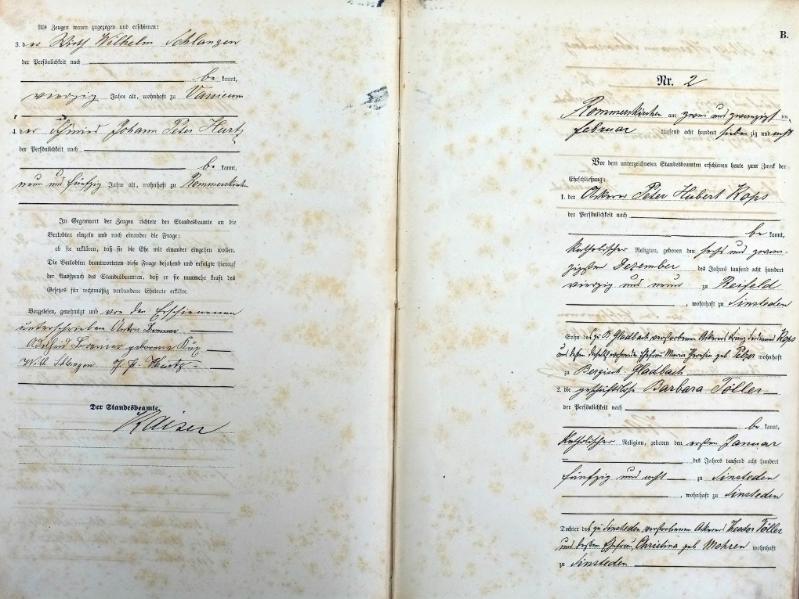 Als Zeugen waren zugezogen und erschienen:
3. der Wirth Wilhelm Schlangen
der Persönlichkeit nach
be kannt,
vierzig Jahre alt, wohnhaft zu Vanicum
4. der Schmied Johann Peter Hurtz
der Persönlichkeit nach
be kannt,
neun und fünfzig Jahre alt, wohnhaft zu Rommerskirchen
In Gegenwart der Zeugen richtete der Standesbeamte an die
Verlobten einzeln und nach einander die Frage:
ob sie erklären, daß sie die Ehe mit einander eingehen wollen.
Die Verlobten beantworteten diese Frage bejahend und erfolgte hierauf
der Ausspruch des Standesbeamten, daß er sie nunmehr kraft des
Gesetzes für rechtmäßig verbundene Eheleute erkläre.
Vorgelesen, genehmigt und von den Erschienenen
unterschrieben
geborene
W. Schlangen J. P. Hurtz
Der Standesbeamte.
Kaiser
B.
Nr. 2
Rommerskirchen am zwei und zwanzigsten
Februar tausend acht hundert sieben zig und acht
Vor dem unterzeichneten Standesbeamten erschienen heute zum Zweck der
Eheschließung:
1. der Ackerer Peter Hubert Kops
der Persönlichkeit nach
be kannt,
katholischer Religion, geboren den sechs und zwan-
zigsten Dezember des Jahres tausend acht hundert
vierzig und neun zu
, wohnhaft zu Sinsteden
Sohn des zu Gladbach verstorbenen Ackerers Kops
und dessen Ehefrau Maria geb. wohnhaft
zu Gladbach
2. die geschäftslose Barbara Töller
der Persönlichkeit nach
be kannt,
katholischer Religion, geboren den ersten Januar
des Jahres tausend acht hundert
fünfzig und acht zu Sinsteden
, wohnhaft zu Sinsteden
Tochter des zu Sinsteden verstorbenen Ackerers Theodor Töller
und dessen Ehefrau Christina geb. Mohren wohnhaft
zu Sinsteden